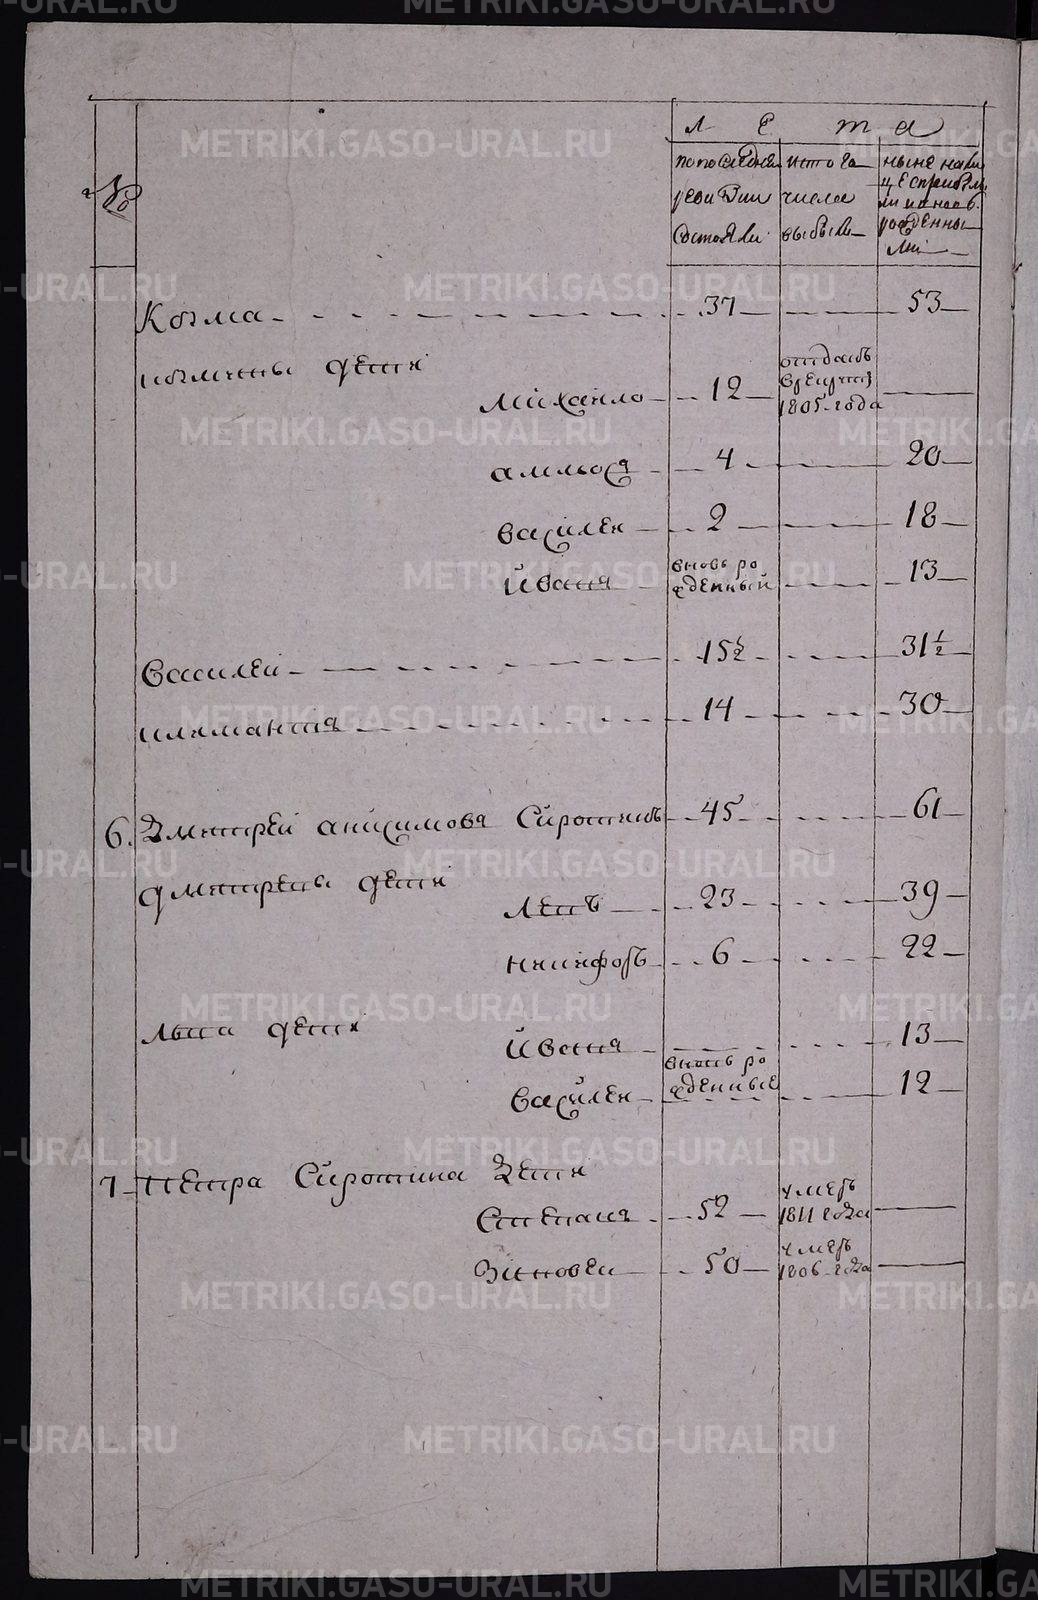 METRIKI.GASO-URAL.RU
№
Л Е т а
попоследней
ревизии
состояли
исто го
числа
выбыли
ныне нали
це сприбыл
ми иновь
рожденны
ми
Козма 37 53
козмины дети
Михайло 12 отданъ
врекруты
1805 года
4 20
василей 2 18
Иванъ вновь ро
жденный 13
василей 15½ 31½
14 30
6. Дмитрей анисимовъ Сиротинъ 45 61
дмитрены дети
Левъ 23 39
никифоръ 6 22
льва дети
Иванъ 13
вновь ро
жденные
василей 12
7 петра Сиротина Дети
Степанъ 52 умеръ
1811 года
Зиновей 50 умеръ
1806 года